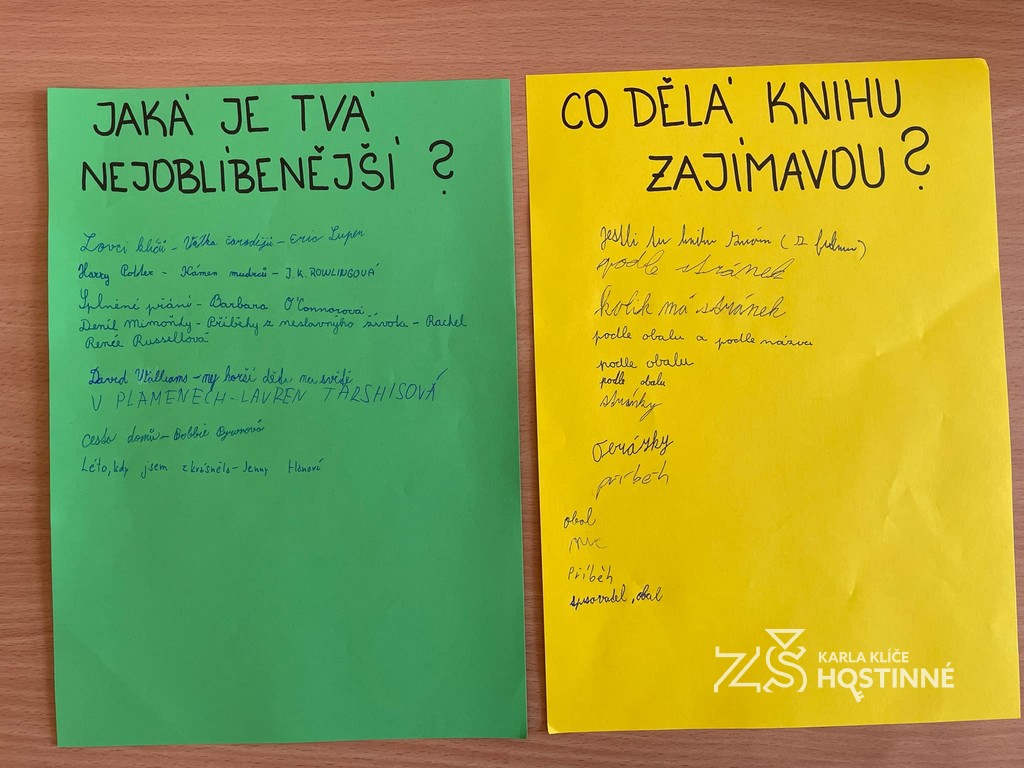 JAKÁ JE TVÁ
NEJOBLÍBENĚJŠÍ ?
Lovci klíčů - Válka čarodějů - Eric Luper
Harry Potter - Kámen mudrců - J.K. ROWLINGOVÁ
Splněné přání - Barbara O'Connorová
Deník Mimoňky - Příběhy z neslavnýho života - Rachel
Renée Russellová
David Walliams - nejhorší děti na světě
V PLAMENECH - LAUREN TARSHISOVÁ
Cesta domů - Bobbie Pyronová
Léto, kdy jsem zkrásněla - Jenny Hanová
CO DĚLÁ KNIHU
ZAJÍMAVOU ?
Jestli tu knihu znám (z filmu)
podle stránek
kolik má stránek
podle obalu a podle názvu
podle obalu
podle obalu
stránky
Obrázky
příběh
obal
Příběh
spisovatel, obal
ZŠ KARLA KLÍČE
HOSTINNÉ